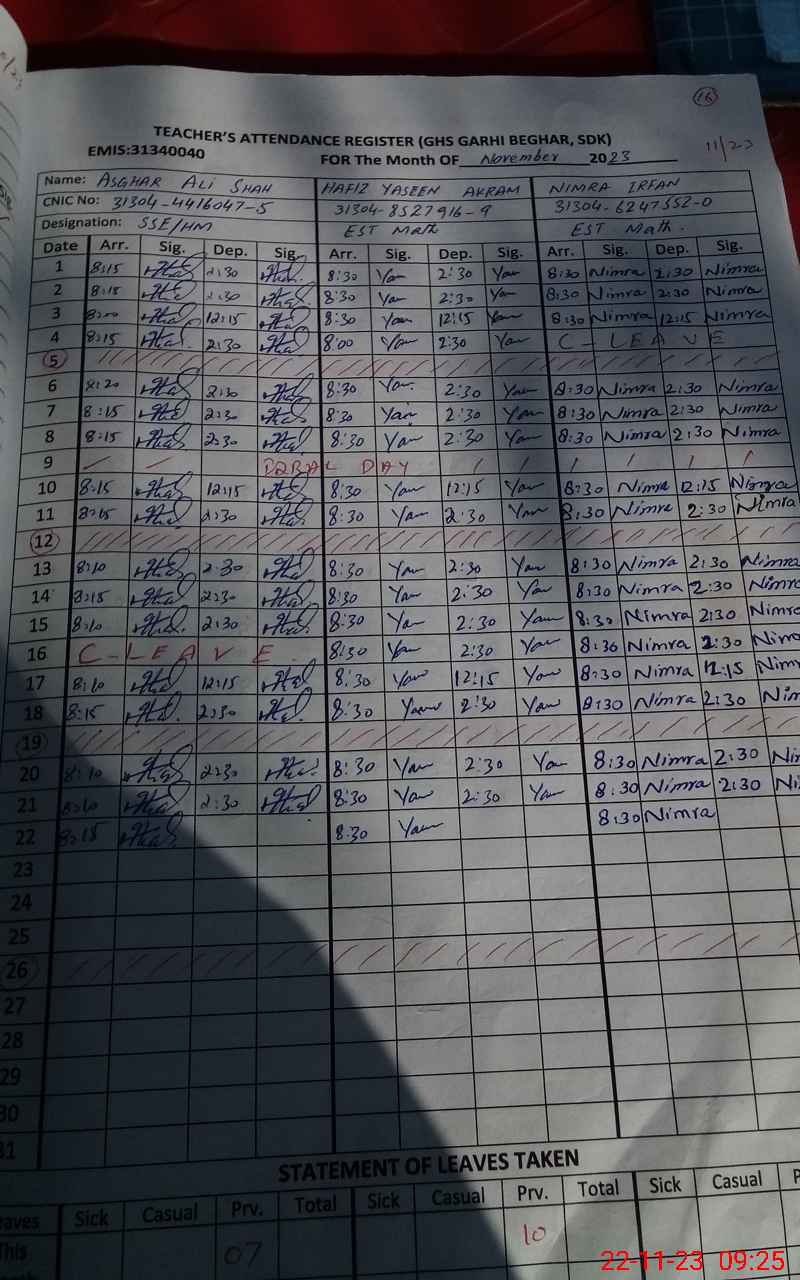 16
TEACHER'S ATTENDANCE REGISTER (GHS GARHI BEGHAR, SDK)
EMIS:31340040 FOR The Month OF November 2023 11/23
Name: ASGHAR ALI SHAH HAFIZ YASEEN AKRAM NIMRA IRFAN
CNIC No: 31304-4416047-5 31304-8527916-9 31304-6247552-0
Designation: SSE/HM EST Math EST Math.
Date Arr. Sig. Dep. Sig. Arr. Sig. Dep. Sig. Arr. Sig. Dep. Sig.
1 8:15 2:30 8:30 Yan 2:30 Yan 8:30 Nimra 2:30 Nimra
2 8:15 2:30 8:30 Yan 2:30 Yan 8:30 Nimra 2:30 Nimra
3 8:00 12:15 8:30 Yan 12:15 Yan 8:30 Nimra 12:15 Nimra
4 8:15 2:30 8:00 Yan 2:30 Yan C - LEAVE
5
6 8:20 2:30 8:30 Yan 2:30 Yan 8:30 Nimra 2:30 Nimra
7 8:15 2:30 8:30 Yan 2:30 Yan 8:30 Nimra 2:30 Nimra
8 8:15 2:30 8:30 Yan 2:30 Yan 8:30 Nimra 2:30 Nimra
9 DAY
10 8:15 12:15 8:30 Yan 12:15 Yan 8:30 Nimra 12:15 Nimra
11 8:15 2:30 8:30 Yan 2:30 Yan 8:30 Nimra 2:30 Nimra
12
13 8:10 2:30 8:30 Yan 2:30 Yan 8:30 Nimra 2:30 Nimra
14 8:15 2:30 8:30 Yan 2:30 Yan 8:30 Nimra 2:30 Nimra
15 8:10 2:30 8:30 Yan 2:30 Yan 8:30 Nimra 2:30 Nimra
16 C-LEAVE 8:30 Yan 2:30 Yan 8:30 Nimra 2:30 Nimra
17 8:10 12:15 8:30 Yan 12:15 Yan 8:30 Nimra 12:15 Nim
18 8:15 2:30 8:30 Yan 2:30 Yan 8:30 Nimra 2:30 Nim
19
20 8:10 2:30 8:30 Yan 2:30 Yan 8:30 Nimra 2:30 Ni
21 8:10 2:30 8:30 Yan 2:30 Yan 8:30 Nimra 2:30 Ni
22 8:15 8:30 Yan 8:30 Nimra
23
24
25
26
27
28
29
30
31
STATEMENT OF LEAVES TAKEN
eaves Sick Casual Prv. Total Sick Casual Prv. Total Sick Casual P
This 07 10
22-11-23 09:25